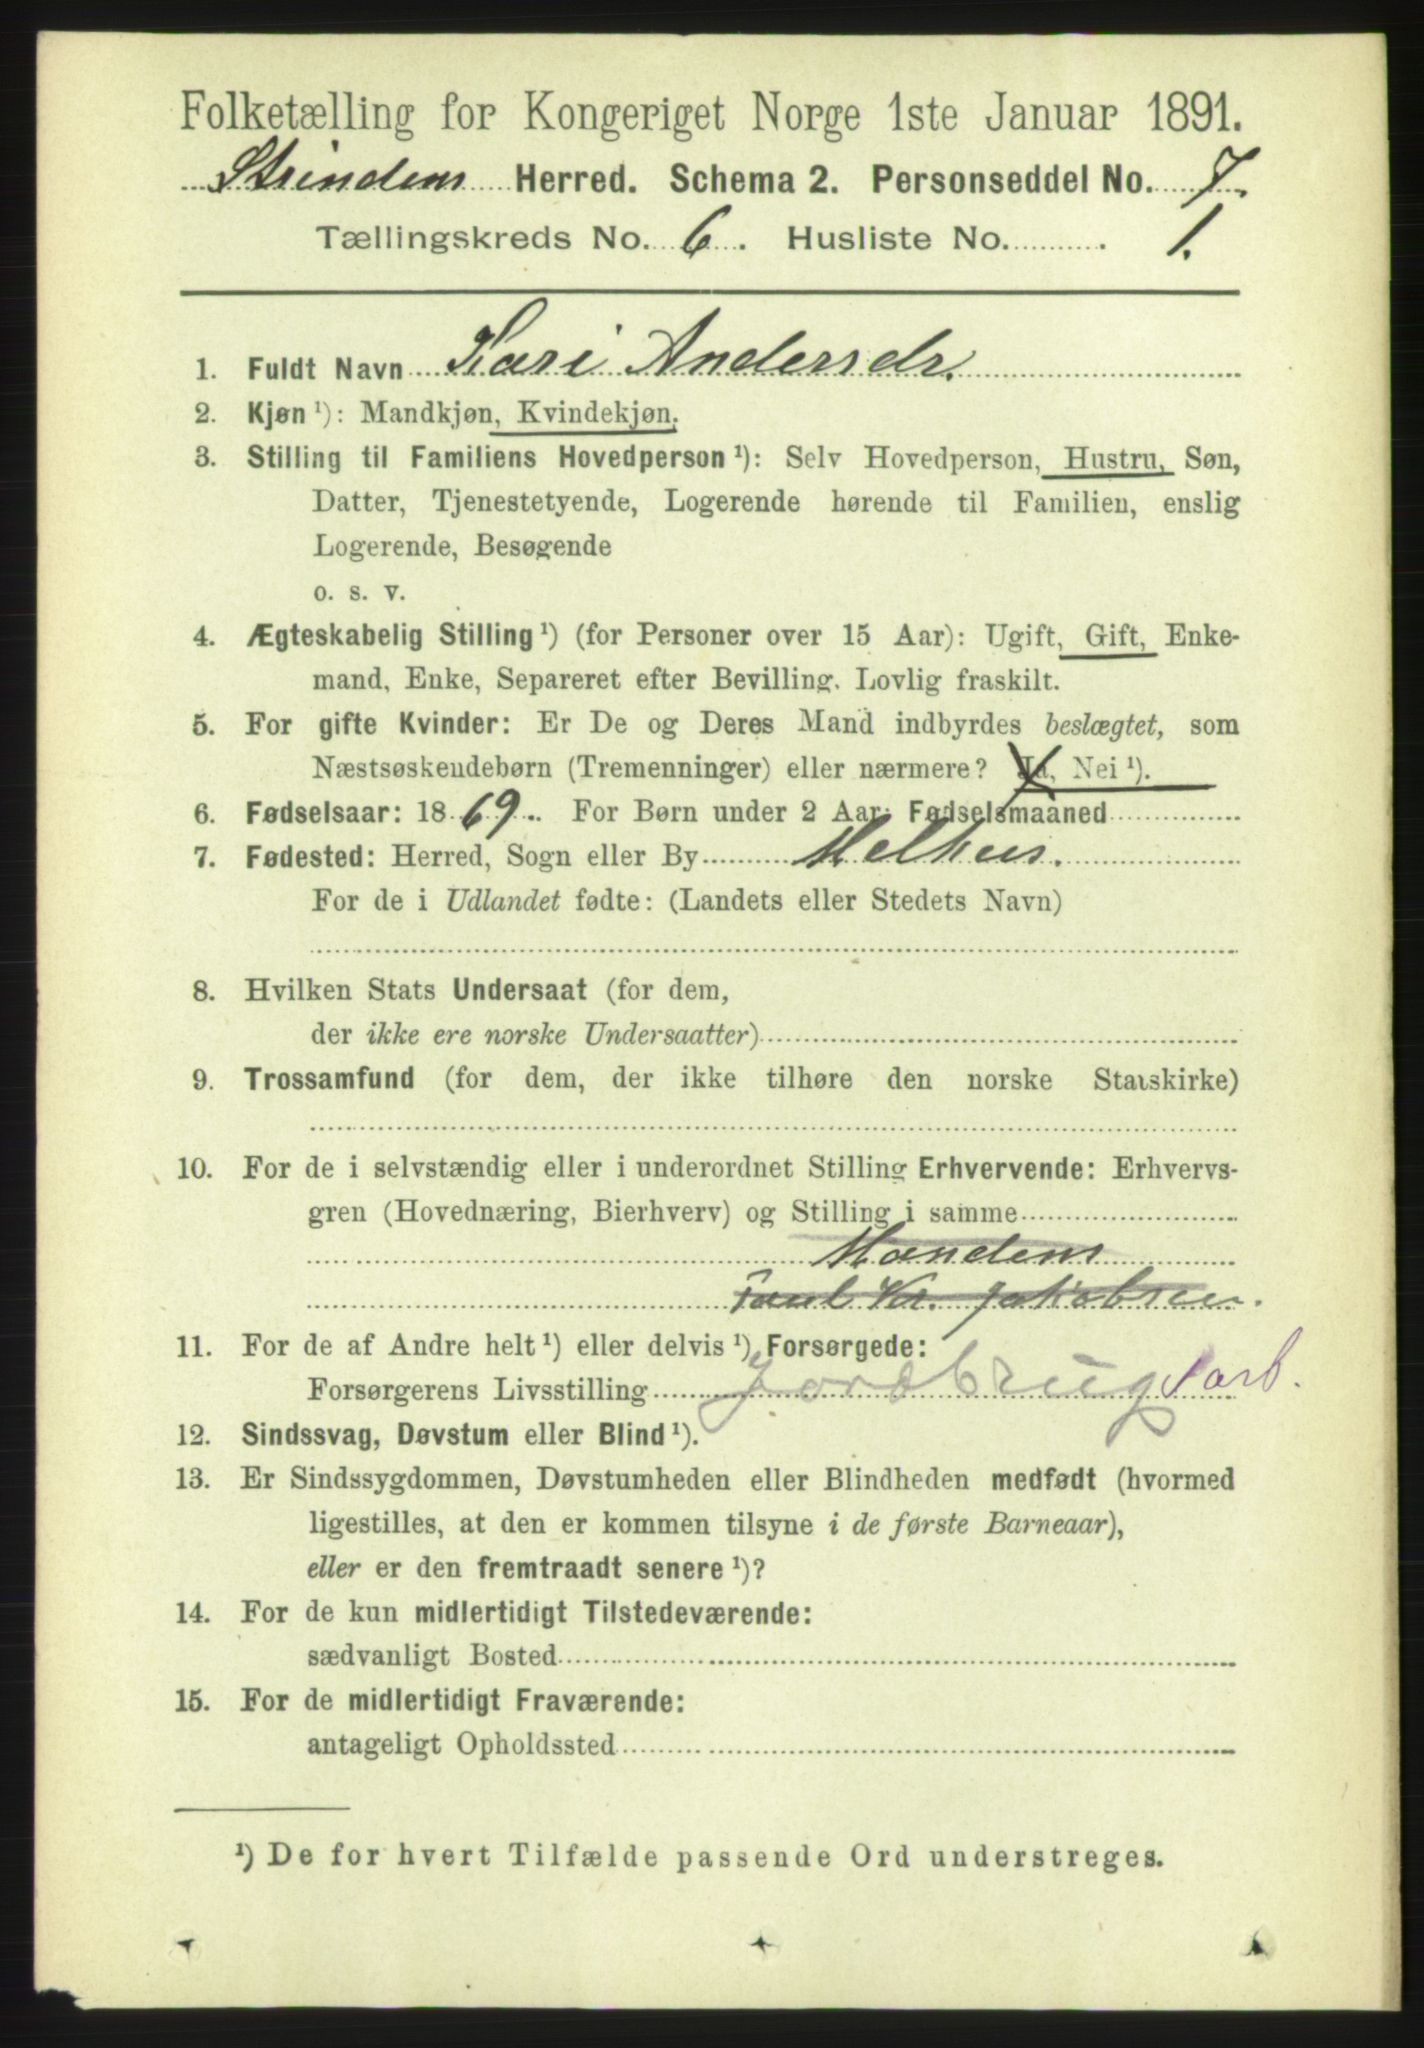 Folketælling for Kongeriget Norge 1ste Januar 1891.
Strindens Herred. Schema 2. Personseddel No. 7.
Tællingskreds No. 6. Husliste No. 1.
1. Fuldt Navn Kari Andersdr.
2. Kjøn ¹): Mandkjøn, Kvindekjøn.
3. Stilling til Familiens Hovedperson ¹): Selv Hovedperson, Hustru, Søn,
Datter, Tjenestetyende, Logerende hørende til Familien, enslig
Logerende, Besøgende
o. s. v.
4. Ægteskabelig Stilling ¹) (for Personer over 15 Aar): Ugift, Gift, Enke-
mand, Enke, Separeret efter Bevilling. Lovlig fraskilt.
5. For gifte Kvinder: Er De og Deres Mand indbyrdes beslægtet, som
Næstsøskendebørn (Tremenninger) eller nærmere? Ja, Nei ¹).
6. Fødselsaar: 1869. For Børn under 2 Aar: Fødselsmaaned
7. Fødested: Herred, Sogn eller By Melhus.
For de i Udlandet fødte: (Landets eller Stedets Navn)
8. Hvilken Stats Undersaat (for dem,
der ikke ere norske Undersaatter)
9. Trossamfund (for dem, der ikke tilhøre den norske Statskirke)
10. For de i selvstændig eller i underordnet Stilling Erhvervende: Erhvervs-
gren (Hovednæring, Bierhverv) og Stilling i samme
Mandens
Paul Kr. Jakobsen.
11. For de af Andre helt ¹) eller delvis ¹) Forsørgede:
Forsørgerens Livsstilling Jordbrugsarb.
12. Sindssvag, Døvstum eller Blind ¹).
13. Er Sindssygdommen, Døvstumheden eller Blindheden medfødt (hvormed
ligestilles, at den er kommen tilsyne i de første Barneaar),
eller er den fremtraadt senere ¹)?
14. For de kun midlertidigt Tilstedeværende:
sædvanligt Bosted
15. For de midlertidigt Fraværende:
antageligt Opholdssted
¹) De for hvert Tilfælde passende Ord understreges.